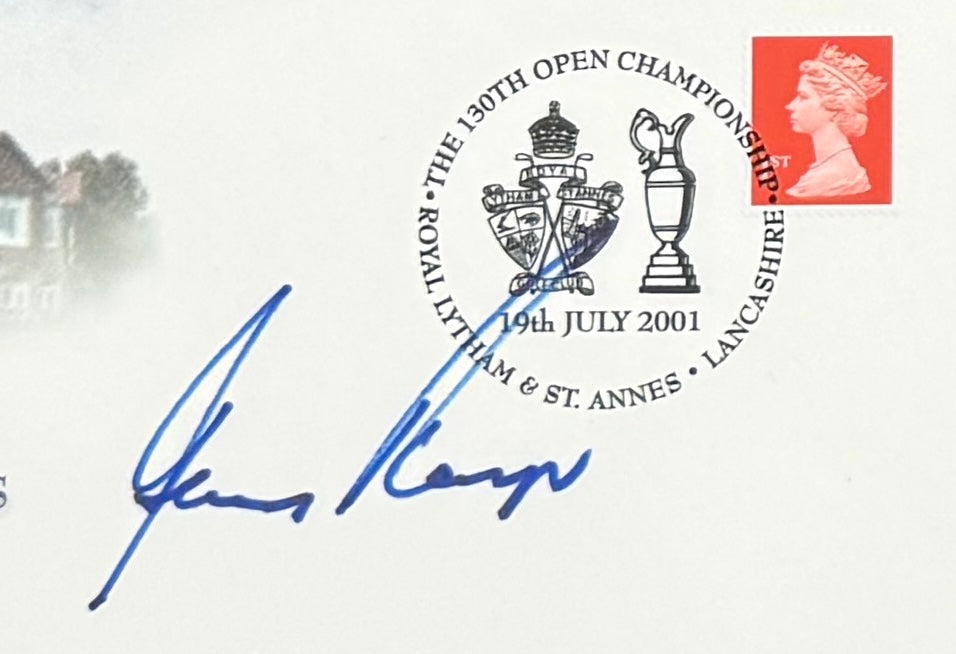 • THE 130TH OPEN CHAMPIONSHIP •
ROYAL
LYTHAM ST ANNES
GOLF CLUB
1ST
19th JULY 2001
ROYAL LYTHAM & ST. ANNES • LANCASHIRE
S